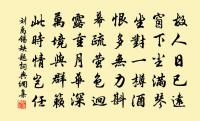 故人日已遠
窗下塵滿琴
坐對一樽酒
恨多無力斟
幕疏螢色迥
露重月華深
萬境與群籟
此時情豈任
刘禹锡缺题词典网集